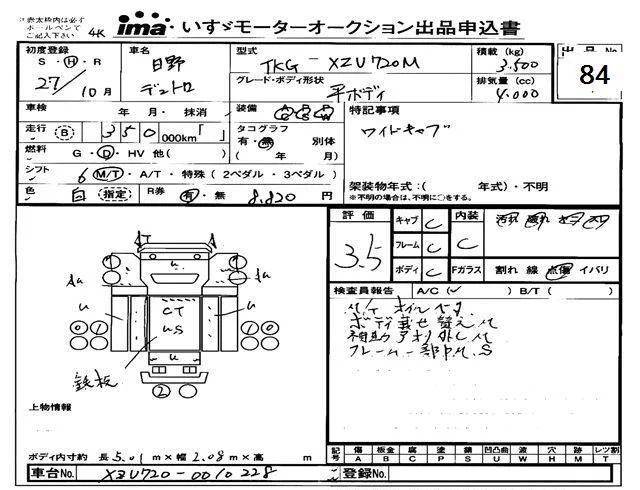 ※赤太枠内は必ず
ボールペンで
ご記入下さい
4K
ima いすゞモーターオークション出品申込書
出品No.
84
初度登録
S・H・R
27/10月
車名
日野
デュトロ
型式
TKG-XZU720M
グレード・ボディ形状
平ボディ
積載 (kg)
3.500
排気量 (cc)
4.000
車検 年・月・抹消
走行 B 350,000km「 」
燃料 G・D・HV 他( )
シフト 6 M/T・A/T・特殊 (2ペダル・3ペダル)
色 白 指定
R券 有・無 8.820 円
装備 AC PS PW
タコグラフ
有・無 別体
( 年 月)
特記事項
ワイドキャブ
架装物年式:( 年式)・不明
※不明の場合は、不明に○をする。
評価
3.5
キャブ C
フレーム C
ボディ C
内装
C
Fガラス 割れ 線 点傷 イバリ
検査員報告 A/C(✓) B/T( )
M/T オイル
ボディ載せ替えM
補助アオリ外しM
フレーム一部M.S
AT
Au
Au
u
u
u
u
CT
uS
0 1
1 0
2
鉄板
上物情報
ボディ内寸約 長 5.01 m×幅 2.08 m×高 m
記号 傷 板金 腐 塗 錆 凹凸曲 波 穴 跡 レツ割
A B C P S U W H M T
車台No. XZU720-0010228
登録No.